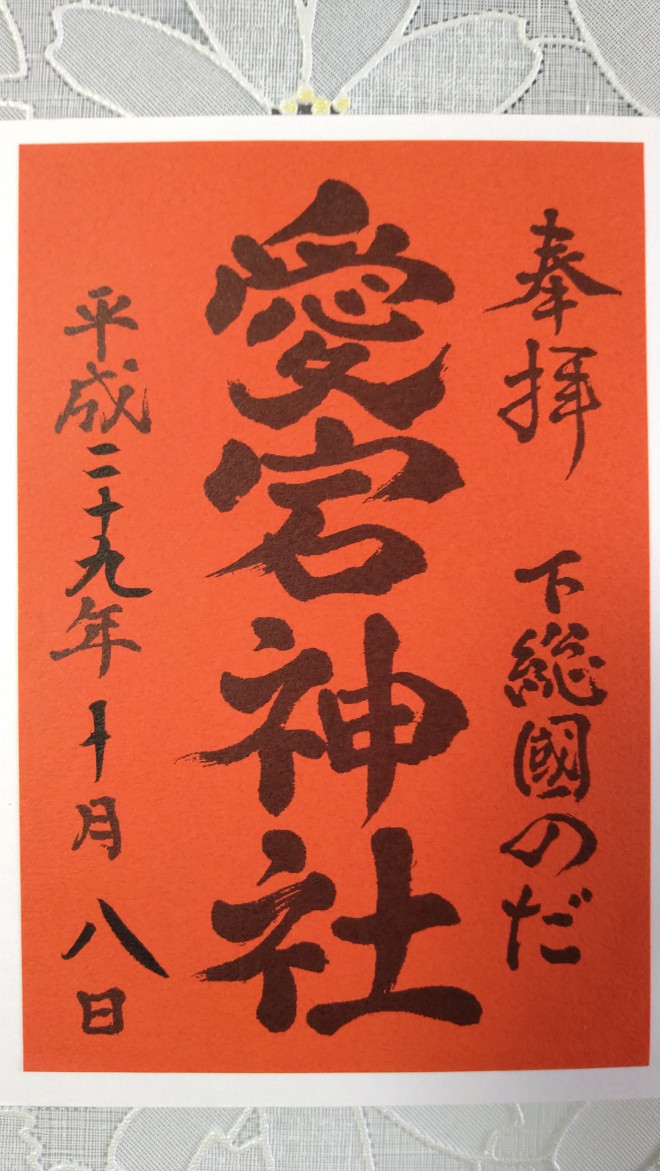 奉拝　下総國のだ
愛宕神社
平成二十九年十月八日